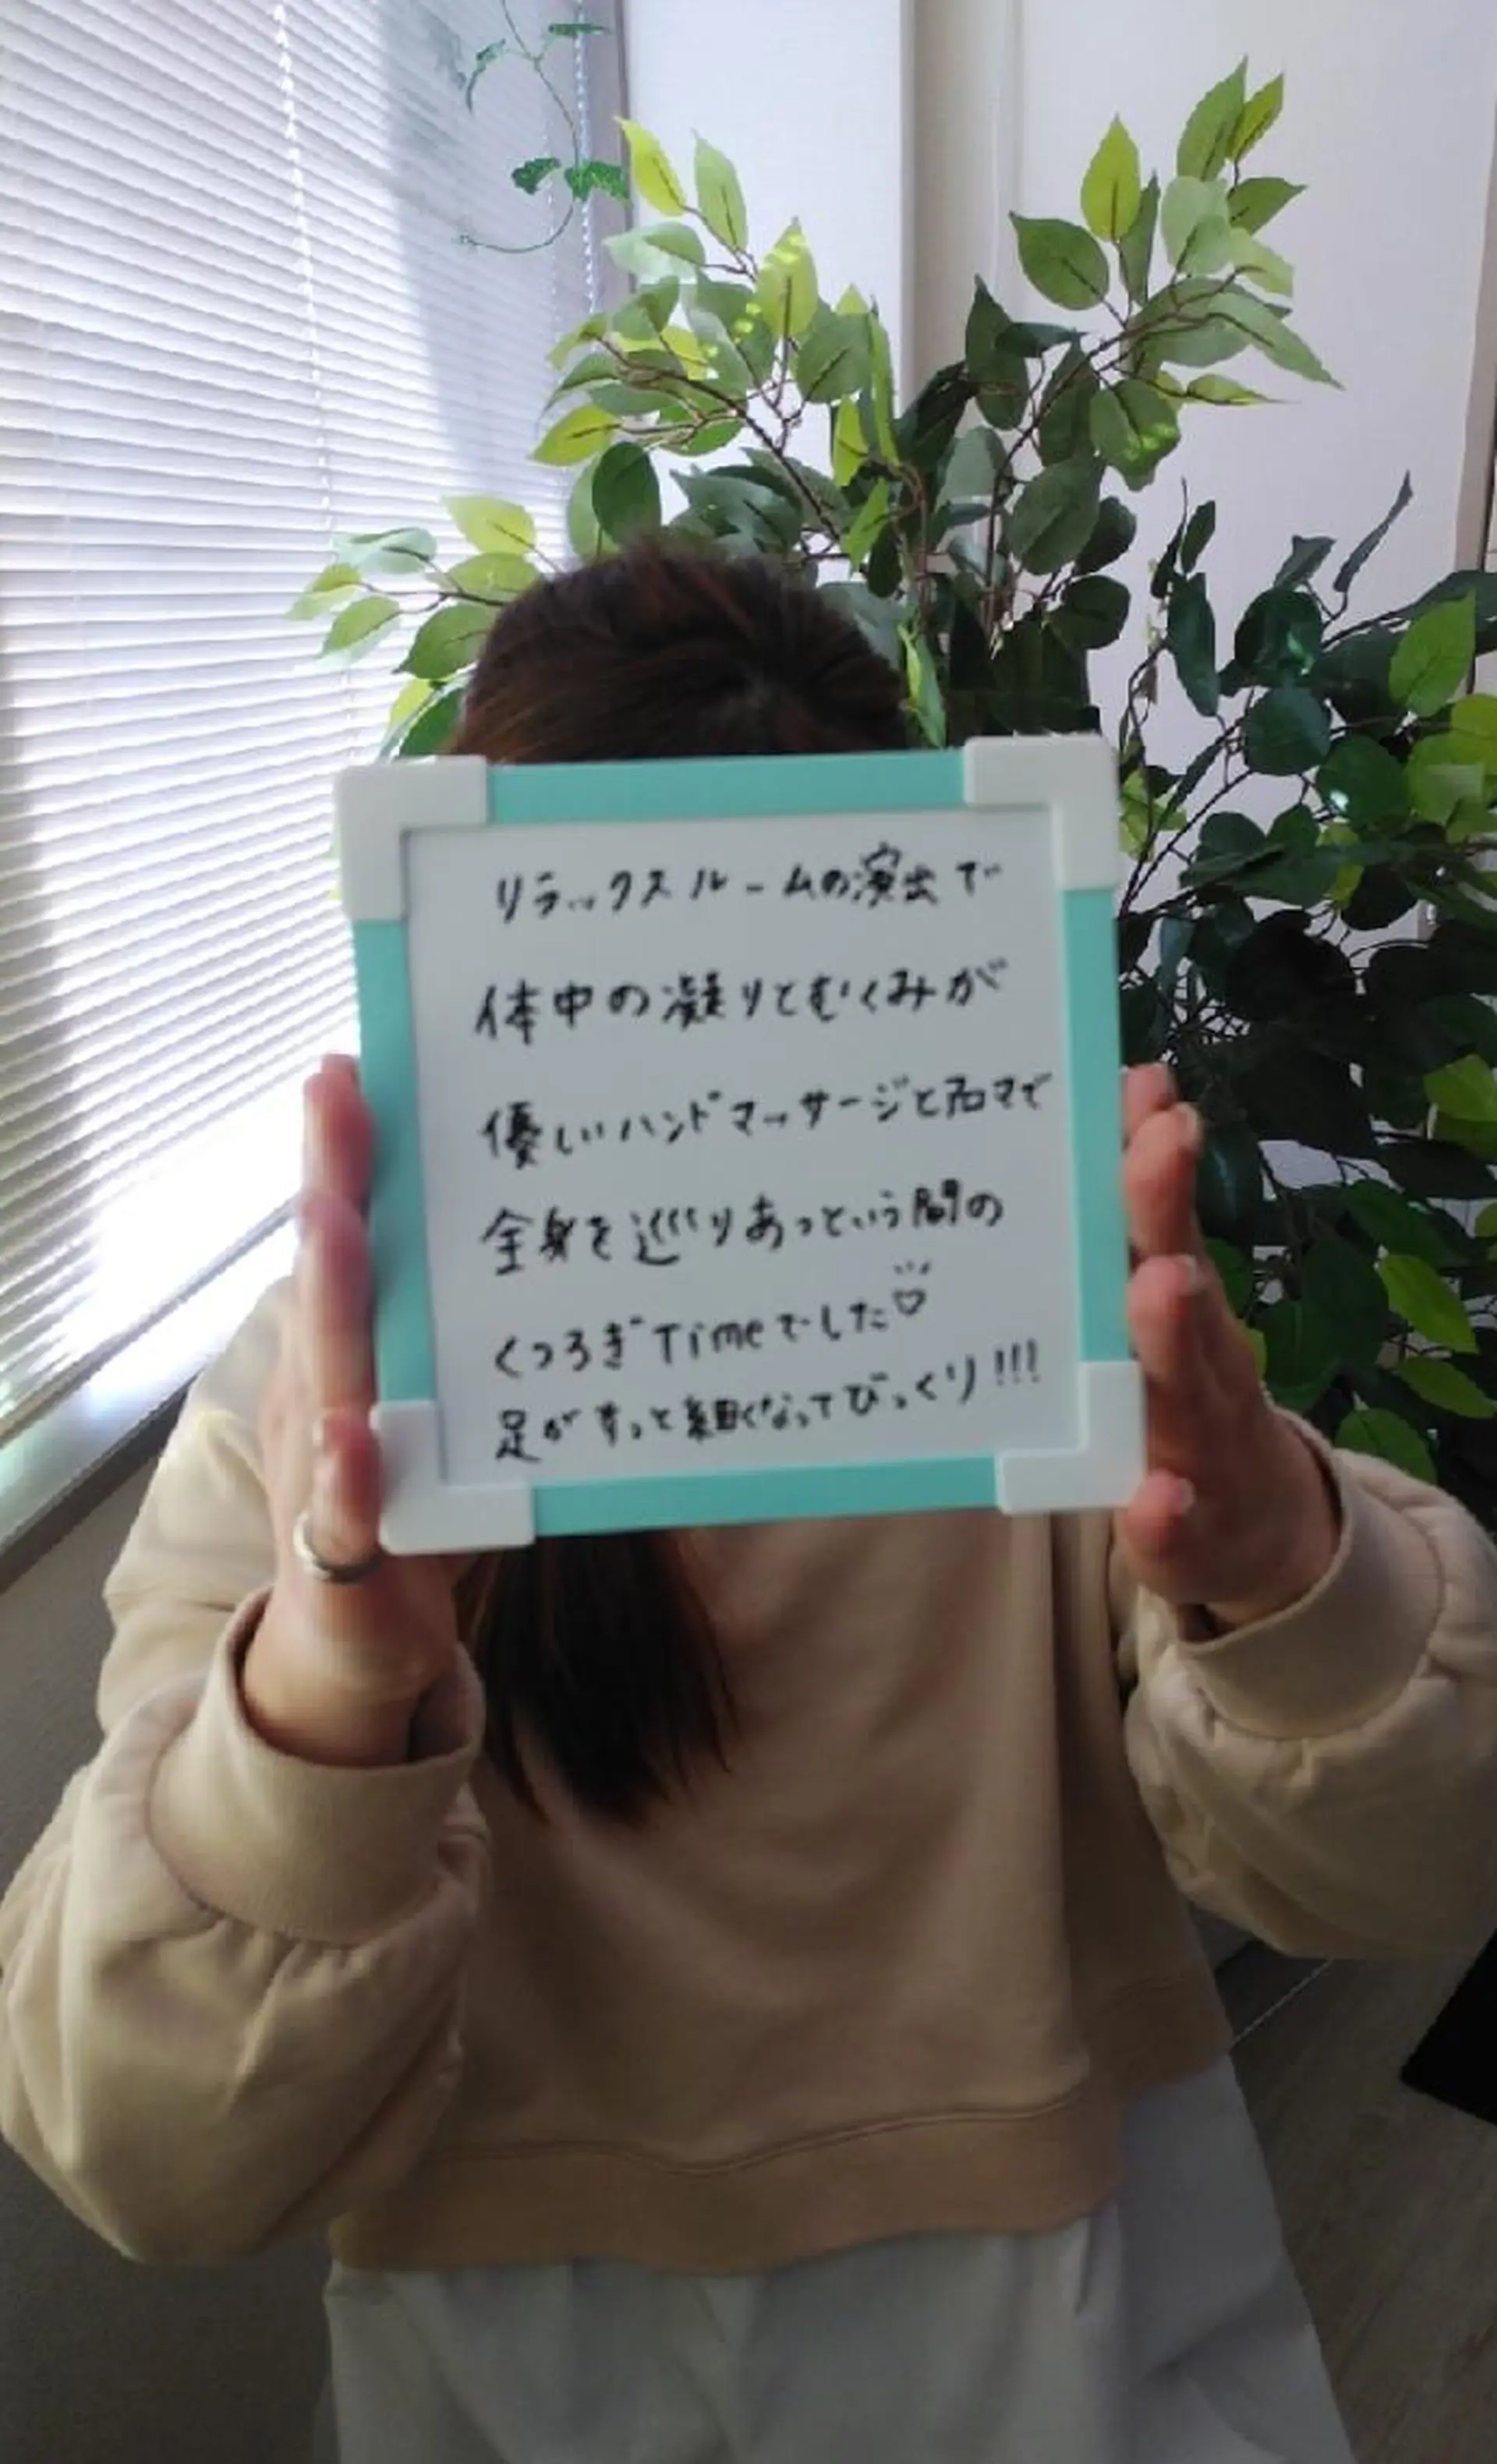 リラックスルームの演出で
体中の凝りとむくみが
優しいハンドマッサージとアロマで
全身を巡りあっという間の
くつろぎTimeでした♡
足がすっと細くなってびっくり!!!